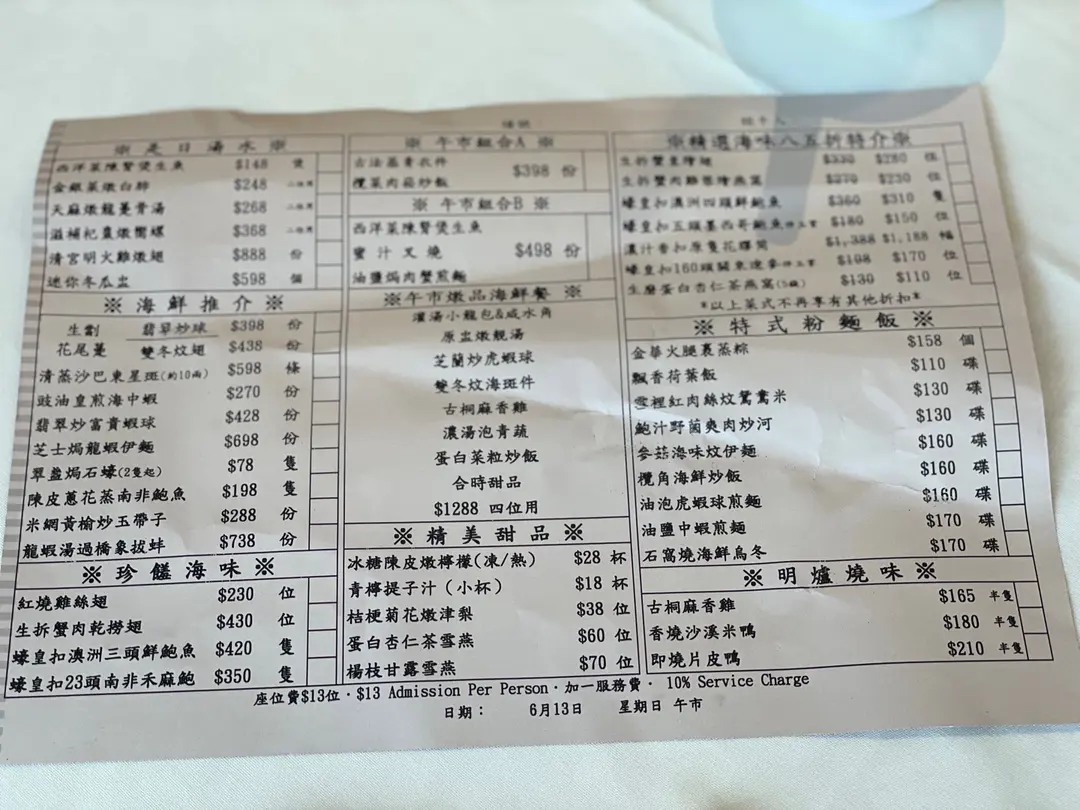 ※ 是日湯水 ※
西洋菜陳腎煲生魚 $148 煲
金銀菜燉白肺 $248
天麻燉龍躉骨湯 $268
滋補杞棗燉響螺 $368
清宮明火雞燉翅 $888 份
迷你冬瓜盅 $598 個
※ 海鮮推介 ※
生劏 翡翠炒球 $398 份
花尾躉 雙冬炆翅 $438 份
清蒸沙巴東星斑(約10兩) $598 條
豉油皇煎海中蝦 $270 份
翡翠炒富貴蝦球 $428 份
芝士焗龍蝦伊麵 $698 份
翠盞焗石蠔(2隻起) $78 隻
陳皮蔥花蒸南非鮑魚 $198 隻
米網黃榆炒玉帶子 $288 份
龍蝦湯過橋象拔蚌 $738 份
※ 珍饈海味 ※
紅燒雞絲翅 $230 位
生拆蟹肉乾撈翅 $430 位
蠔皇扣澳洲三頭鮮鮑魚 $420 隻
蠔皇扣23頭南非禾麻鮑 $350 隻
※ 午市組合A ※
古法蒸青衣件
欖菜肉菘炒飯 $398 份
※ 午市組合B ※
西洋菜陳腎煲生魚
蜜汁叉燒 $498 份
油鹽焗肉蟹煎麵
※午市燉品海鮮餐 ※
灌湯小龍包&咸水角
原盅燉靚湯
芝蘭炒虎蝦球
雙冬炆海斑件
古桐麻香雞
濃湯泡青蔬
蛋白菜粒炒飯
合時甜品
$1288 四位用
※ 精美甜品 ※
冰糖陳皮燉檸檬(凍/熱) $28 杯
青檸提子汁 (小杯) $18 杯
桔梗菊花燉津梨 $38 位
蛋白杏仁茶雪燕 $60 位
楊枝甘露雪燕 $70 位
※精選海味八五折特介※
生拆蟹皇燴翅 $330 $280 位
生拆蟹肉雞蓉燴燕窩 $270 $230 位
蠔皇扣澳洲四頭鮮鮑魚 $360 $310 隻
蠔皇扣五頭墨西哥鮑魚 $180 $150 位
濃汁香扣原隻花膠筒 $1,388 $1,188
蠔皇扣160頭關東遼參 $198 $170 位
生磨蛋白杏仁茶燕窩 $130 $110 位
*以上菜式不再享有其他折扣*
※ 特式粉麵飯 ※
金華火腿裹蒸粽 $158 個
飄香荷葉飯 $110 碟
雪裡紅肉絲炆鴛鴦米 $130 碟
鮑汁野菌爽肉炒河 $130 碟
參菇海味炆伊麵 $160 碟
欖角海鮮炒飯 $160 碟
油泡虎蝦球煎麵 $160 碟
油鹽中蝦煎麵 $170 碟
石窩燒海鮮烏冬 $170 碟
※ 明爐燒味 ※
古桐麻香雞 $165 半隻
香燒沙溪米鴨 $180 半隻
即燒片皮鴨 $210 半隻
座位費$13位．$13 Admission Per Person．加一服務費． 10% Service Charge
日期： 6月13日 星期日 午市